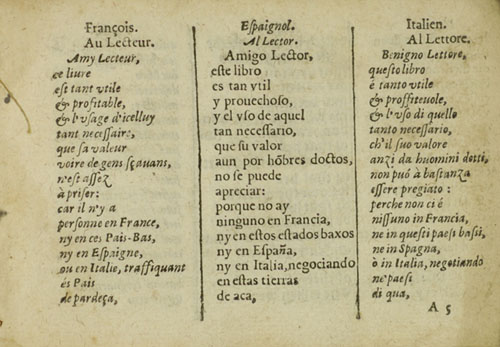 François.
Au Lecteur.
Amy Lecteur,
ce liure
est tant vtile
& profitable,
& l'vsage d'icelluy
tant necessaire,
que sa valeur
voire de gens sçauans,
n'est assez
à priser:
car il n'y a
personne en France,
ny en ces Pais-Bas,
ny en Espaigne,
ou en Italie, traffiquant
és Pais
de pardeça,
Espaignol.
Al Lector.
Amigo Lector,
este libro
es tan vtil
y prouechoso,
y el vso de aquel
tan necessario,
que su valor
aun por hōbres doctos,
no se puede
apreciar:
porque no ay
ninguno en Francia,
ny en estos estados baxos
ny en España,
ny en Italia, negociando
en estas tierras
de aca,
Italien.
Al Lettore.
Benigno Lettore,
questo libro
è tanto vtile
& proffiteuole,
& l'vso di quello
tanto necessario,
ch'il suo valore
anzi da huomini dotti,
non può à bastanza
essere pregiato:
perche non ci é
nissuno in Francia,
ne in questi paesi bassi,
ne in Spagna,
ò in Italia, negotiando
ne' paesi
di qua,
A 5